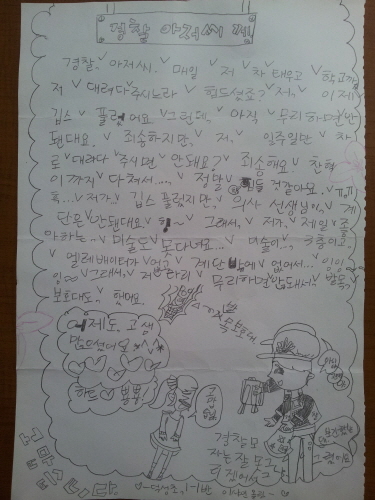 경찰 아저씨 께
경찰 아저씨. 매일 저 차 태우고 학교까
저 대려다 주시는라 힘드셨죠? 저, 이제
깁스 풀었어요. 그런데, 아직 무리하면 안
됀대요. 죄송하지만, 저, 일주일만 차
로 대려다 주시면 안돼요? 죄송해요
이까지 다쳐서..., 정말 힘들 것같아요. ㅠㅠ
흑... 저가, 깁스 풀렀지만, 의사 선생님이, 계
단은 안됀대요. 힝~ 그래서, 저가, 제일 조
아하는~ 미술도 못다녀요... 미술이, 3층이고,
엘레베이터가 없구 계단 밖에 없어서... 잉잉
잉~ 그래서, 저 다리 무리하면 안돼서, 발목
보호대도, 했어요.
어제도 고생
많으셨어요 ^^
하트 뿅뿅
고맙습니다
발목보호대
경찰모
자는 잘 모르니
리 집에서
1-1반
그림이요